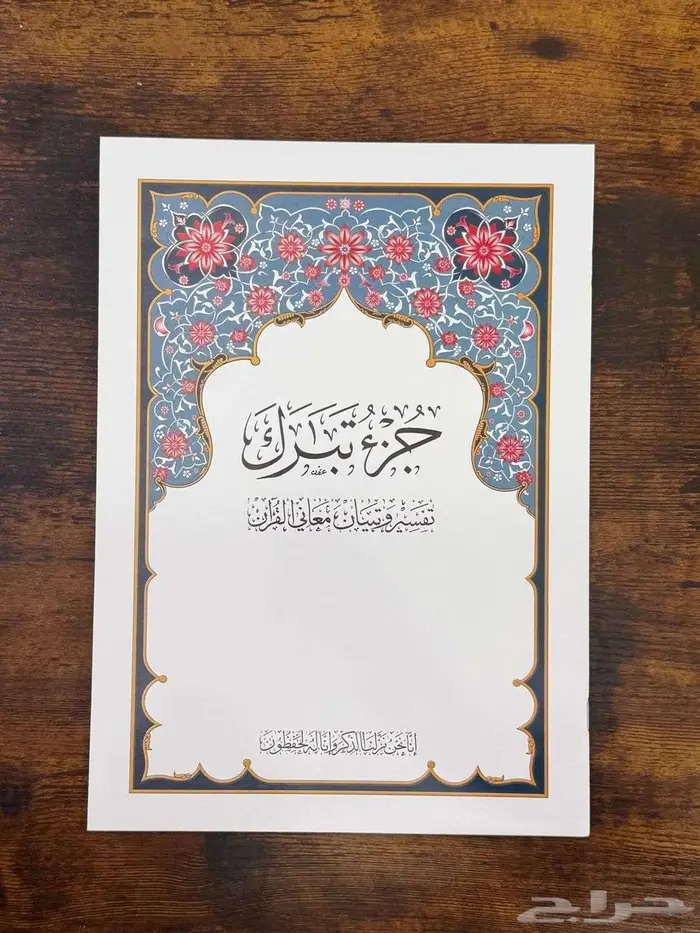 جُزْءُ تَبَٰرَكَ
تفسير وتبيان معاني القرآن
إنا نحن نزلنا الذكر وإنا له لحٰفظون
حراج